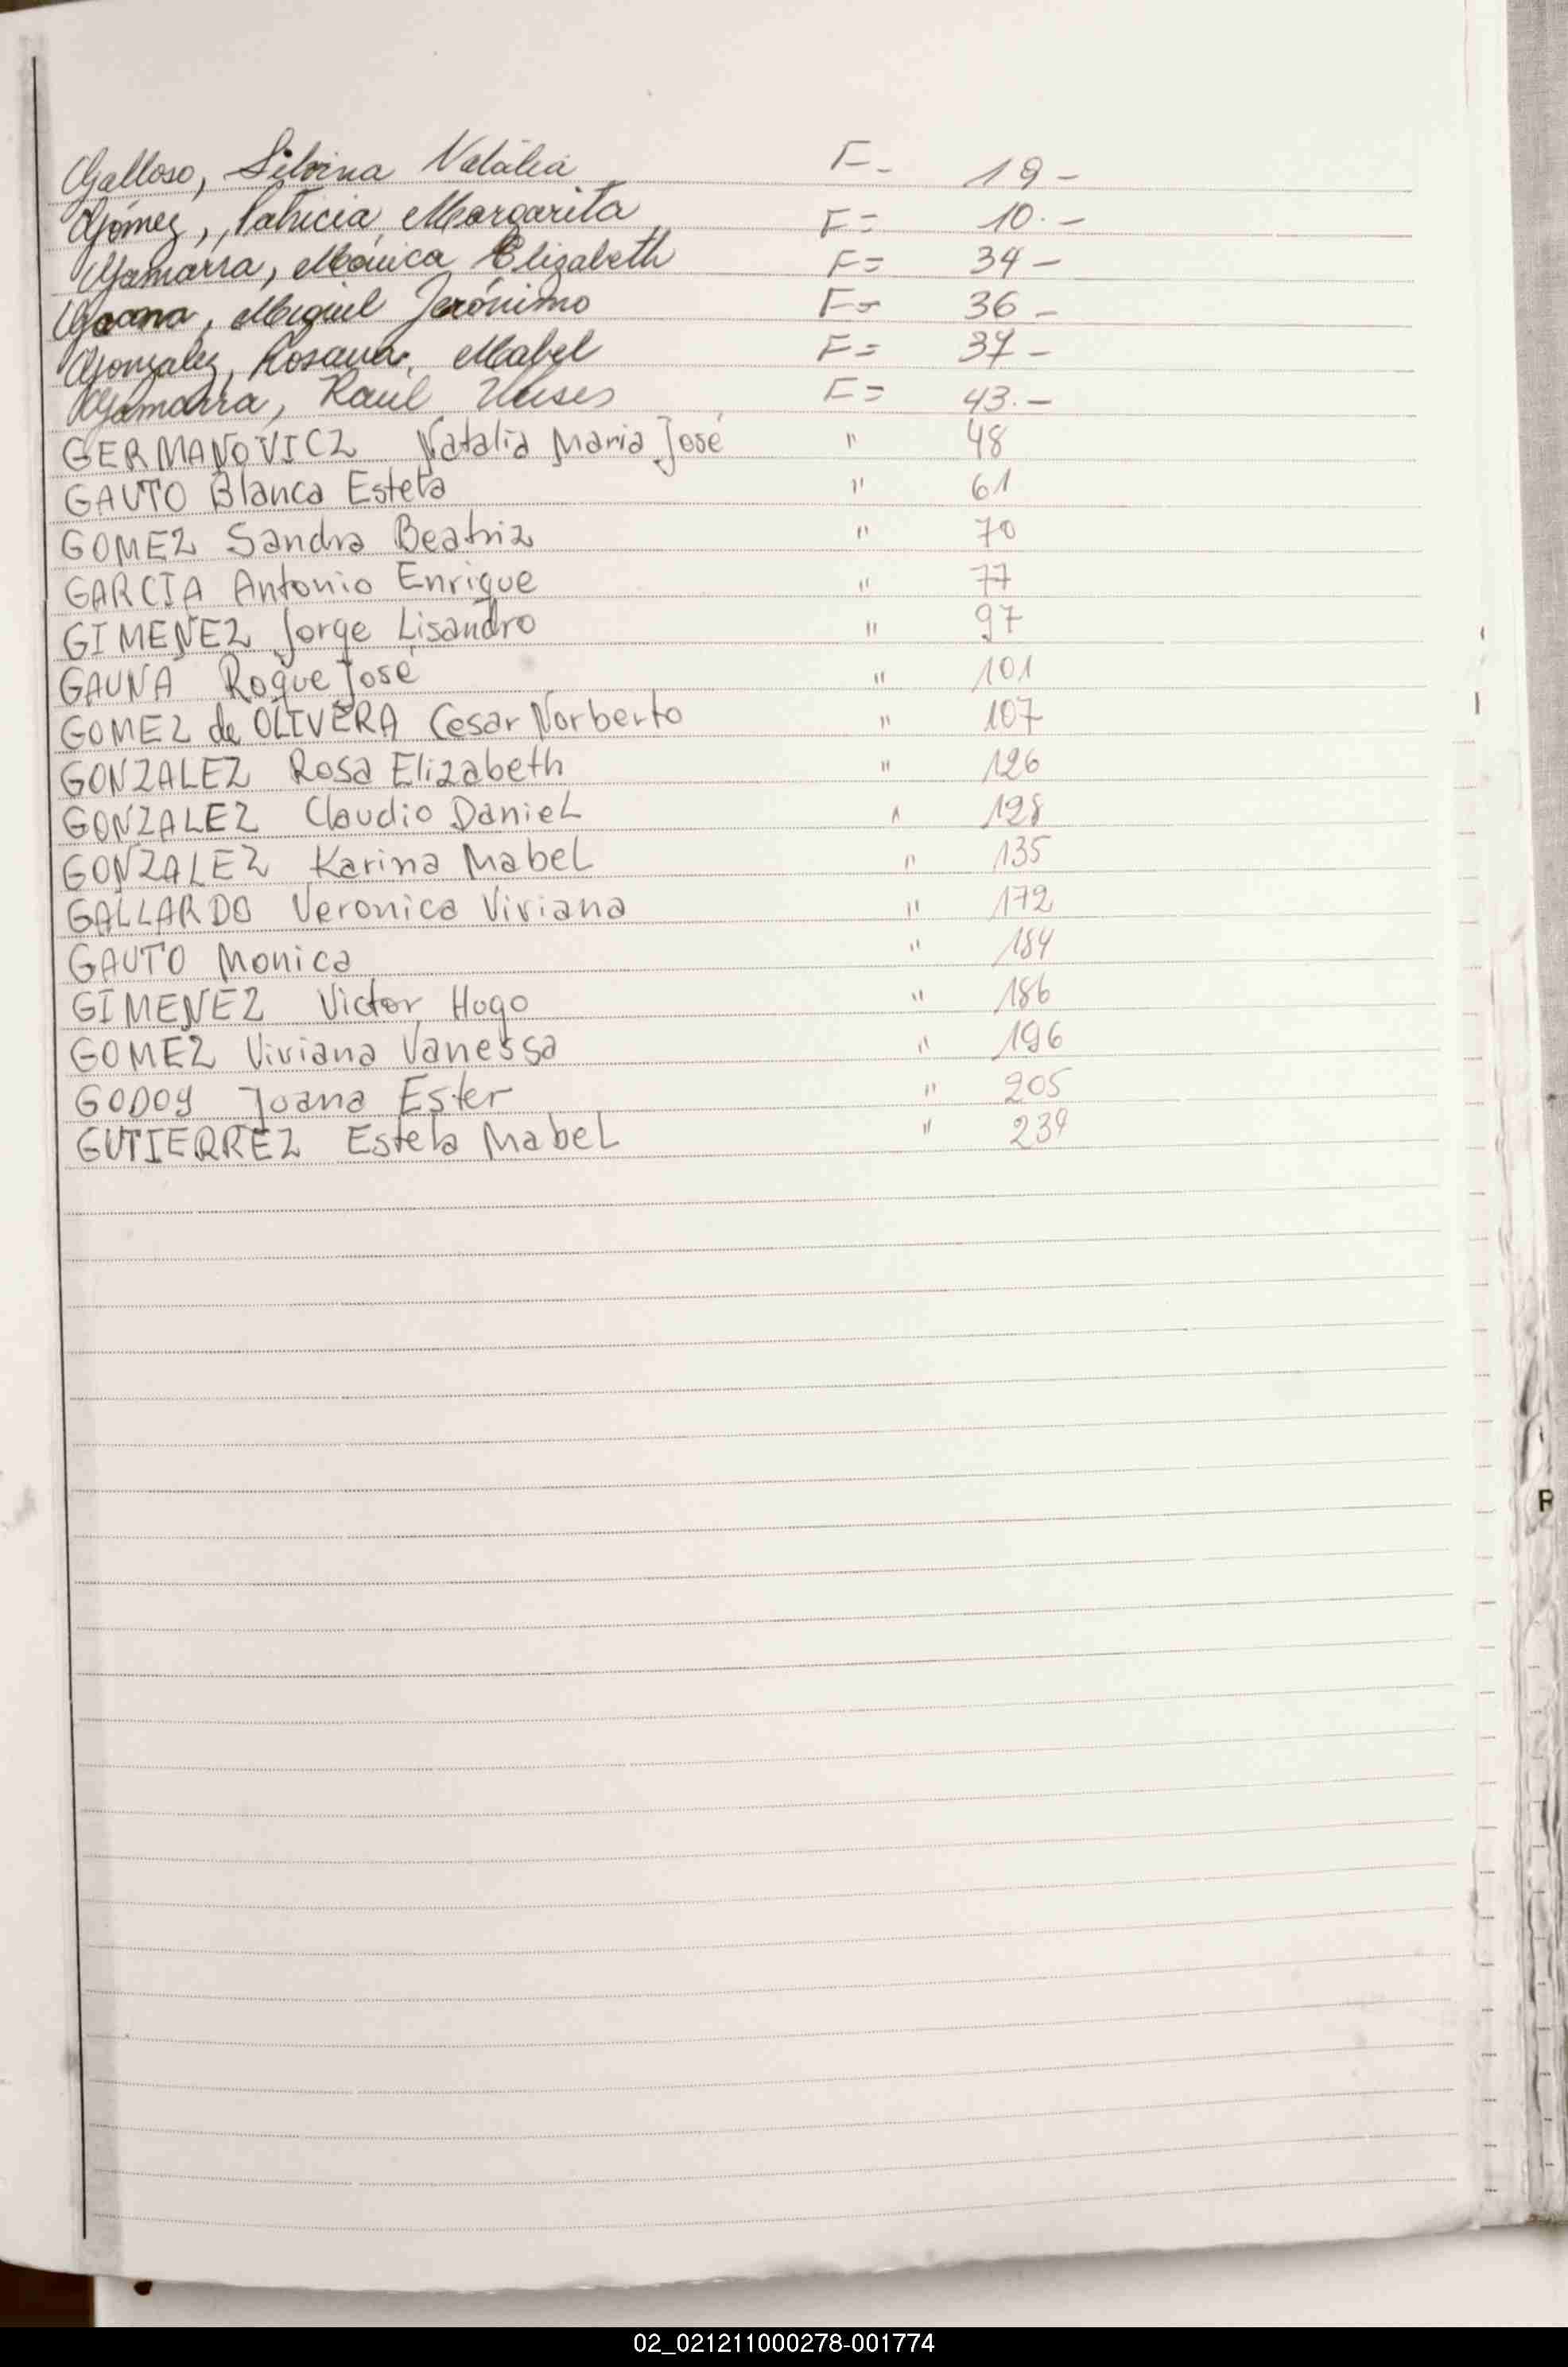 Galloso, Silvina Natalia F- 19-
Gómez, Patricia Margarita F= 10.-
Gamarra, Mónica Elizabeth F= 34-
Gaona, Miguel Jerónimo F= 36-
Gonzalez, Rosana Mabel F= 37-
Gamarra, Raúl Ulises F= 43.-
GERMANOVICZ Natalia Maria José " 48
GAUTO Blanca Estela " 61
GOMEZ Sandra Beatriz " 70
GARCIA Antonio Enrique " 77
GIMENEZ Jorge Lisandro " 97
GAUNA Roque José " 101
GOMEZ de OLIVERA Cesar Norberto " 107
GONZALEZ Rosa Elizabeth " 126
GONZALEZ Claudio Daniel " 128
GONZALEZ Karina Mabel " 135
GALLARDO Veronica Viviana " 172
GAUTO Monica " 184
GIMENEZ Victor Hugo " 186
GOMEZ Viviana Vanessa " 196
GODOY Joana Ester " 205
GUTIERREZ Estela Mabel " 239
R
02_021211000278-001774